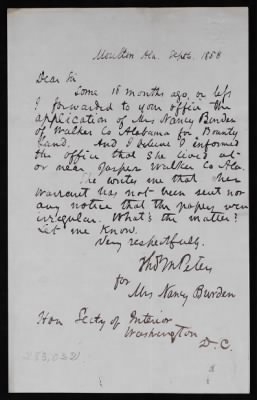 Moulton Ala. Sept 6. 1858
Dear Sir
Some 18 months ago, or less
I forwarded to your office the
application of Mrs Nancy Burden
of Walker Co Alabama for Bounty
Land. And I believe I informed
the office that she lived at
or near Jasper Walker Co Ala.
She writes me that her
Warrant has not been sent nor
any notice that the papers were
irregular. What's the matter?
Let me Know.
Very respectfully.
Thos M Peters
for
Mrs Nancy Burden
Hon Secty of Interior
Washington
D. C.
283,032